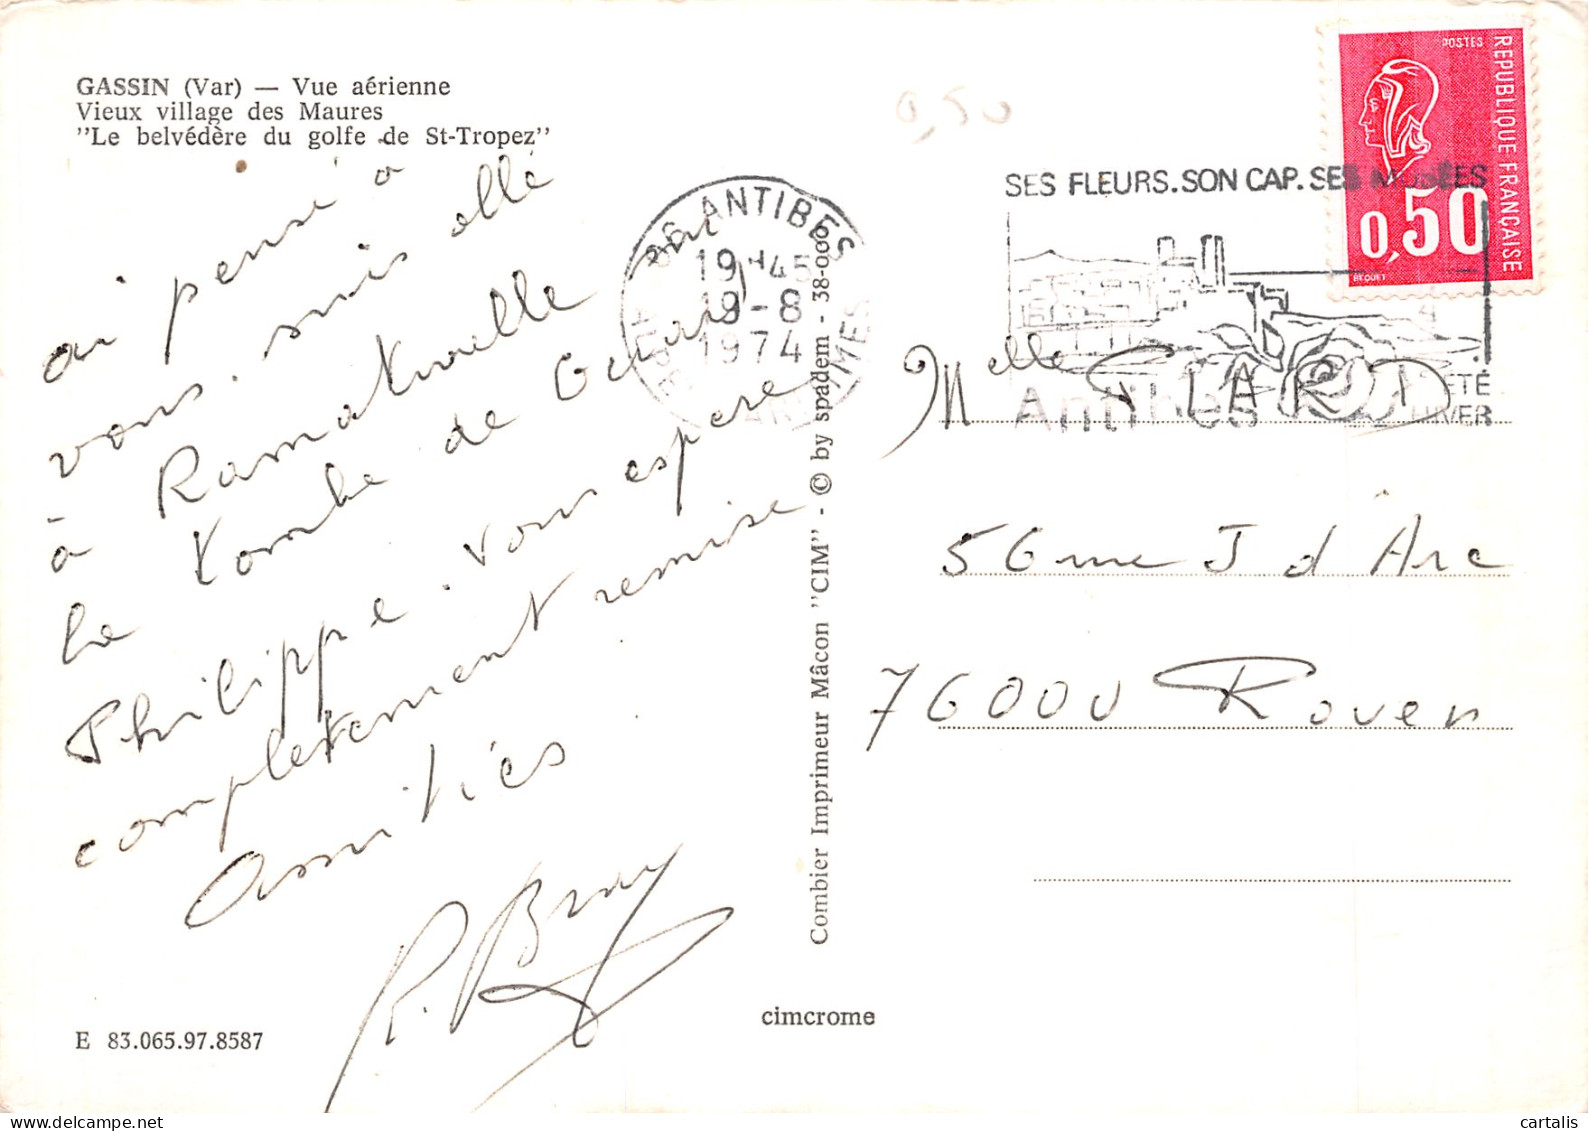 GASSIN (Var) — Vue aérienne
Vieux village des Maures
"Le belvédère du golfe de St-Tropez"
0,50
ai pensé à
vous. suis allé
à Ramatuelle sur
la tombe de Gérard
Philippe. vous espère
completement remise
Amitiés
R. Bray
E 83.065.97.8587
cimcrome
Combier Imprimeur Mâcon "CIM" - © by spadem - 38-000
06 ANTIBES
19H45
19-8
1974
SES FLEURS.SON CAP.SES MUSÉES
Antibes
ÉTÉ
HIVER
POSTES
REPUBLIQUE FRANÇAISE
0,50
BEQUET
Melle
56 rue J d'Arc
76000 Rouen
cartalis.com